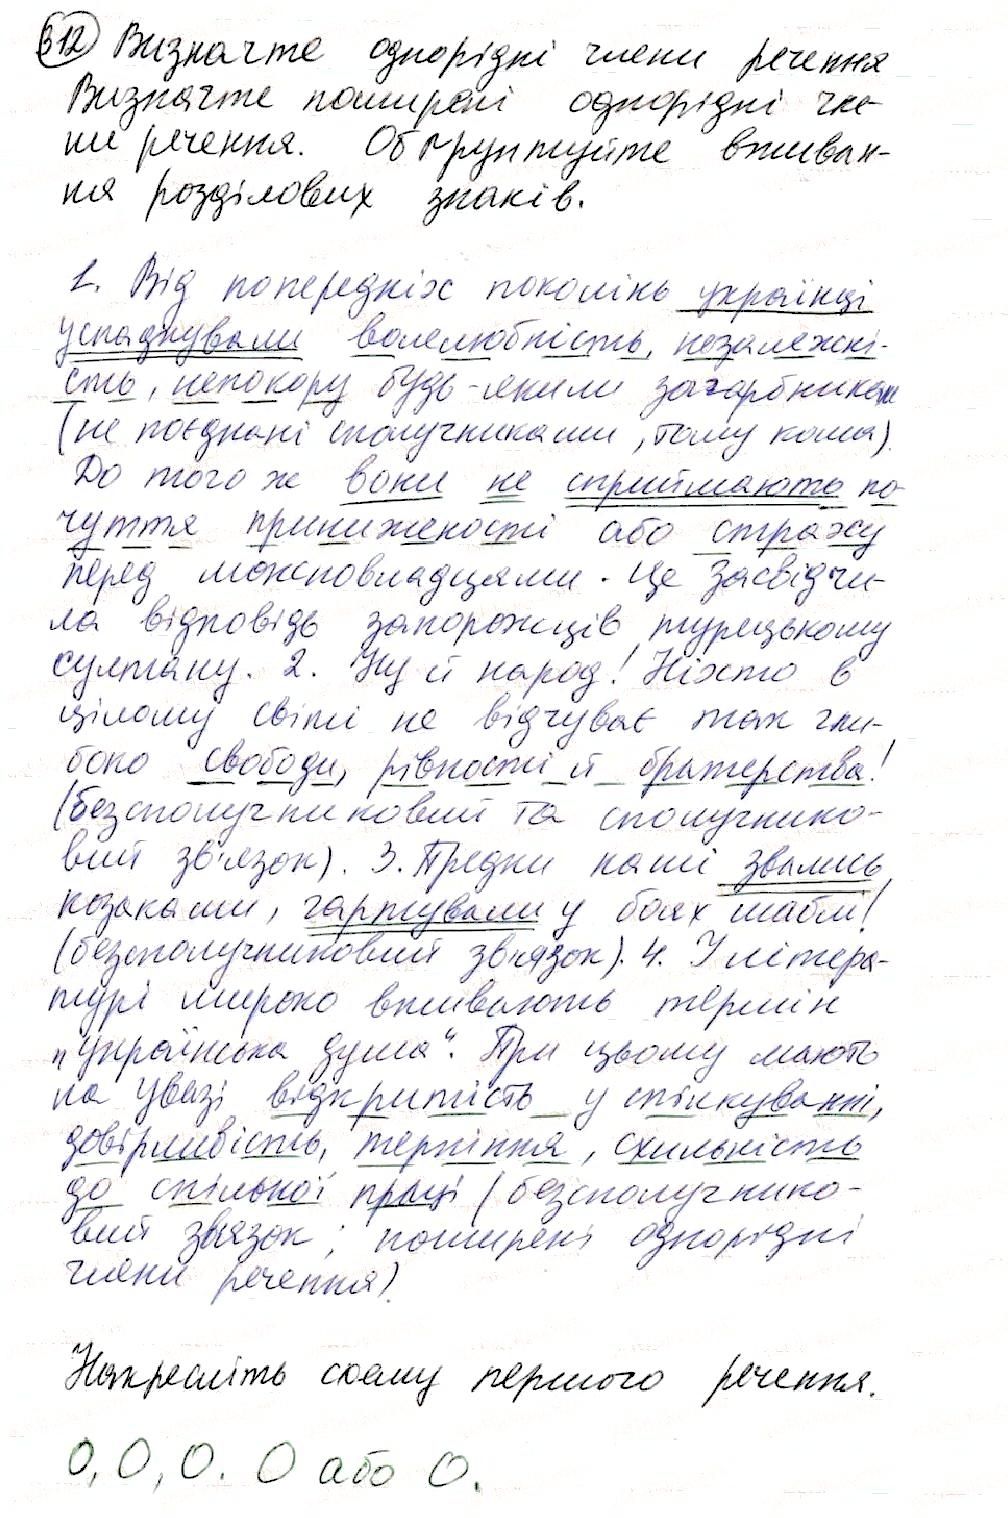 312 Визначте однорідні члени речення
Визначте поширені однорідні чле-
ни речення. Обґрунтуйте вживан-
ня розділових знаків.
1. Від попередніх поколінь українці
успадкували волелюбність, незалежні-
сть, непокору будь-яким загарбникам
(не поєднані сполучниками, тому кома).
До того ж вони не сприймають по-
чуття приниженості або страху
перед можновладцями. Це засвідчи-
ла відповідь запорожців турецькому
султану. 2. Ну й народ! Ніхто в
цілому світі не відчуває так гли-
боко свободи, рівності й братерства!
(безсполучниковий та сполучнико-
вий зв'язок). 3. Предки наші звались
козаками, гартували у боях шаблі!
(безсполучниковий зв'язок). 4. У літера-
турі широко вживають термін
„українська душа“. При цьому мають
на увазі відкритість у спілкуванні,
довірливість, терпіння, схильність
до спільної праці (безсполучнико-
вий звязок; поширені однорідні
члени речення).
Накресліть схему першого речення.
О, О, О. О або О.